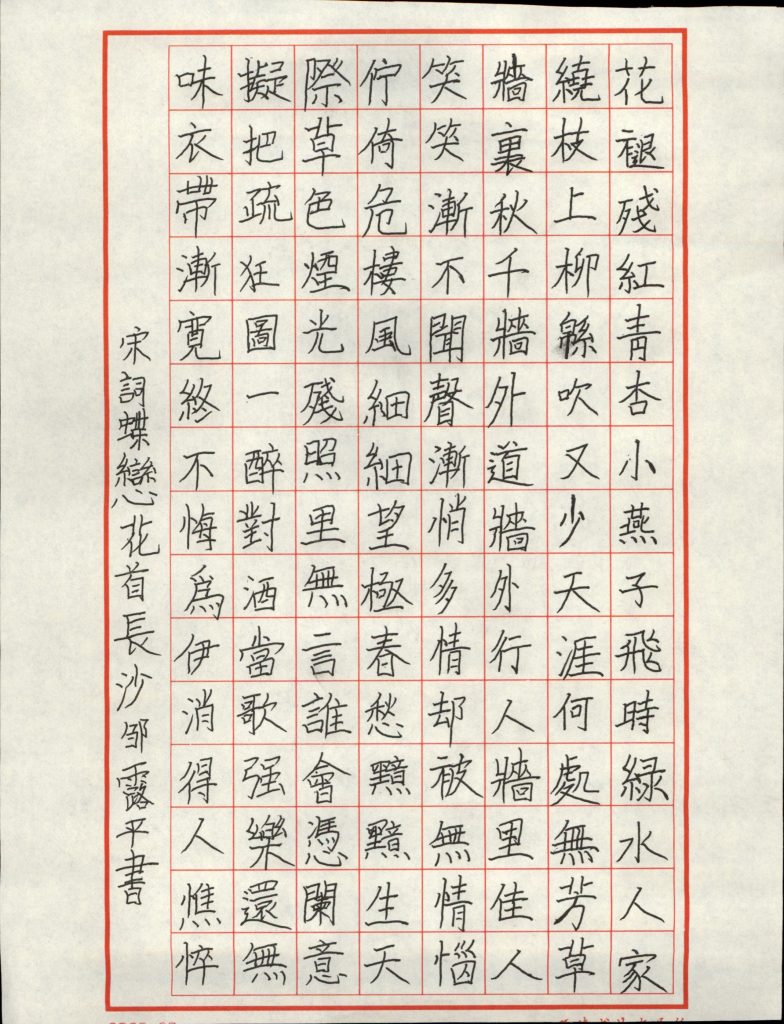 花褪殘紅青杏小燕子飛時緑水人家
繞枝上柳緜吹又少天涯何處無芳草
牆裏秋千牆外道牆外行人牆里佳人
笑笑漸不聞聲漸悄多情却被無情惱
佇倚危樓風細細望極春愁黯黯生天
際草色煙光殘照里無言誰會憑闌意
擬把疏狂圖一醉對酒當歌强樂還無
味衣帶漸寬終不悔爲伊消得人憔悴
宋詞蝶戀花首長沙邹露平書